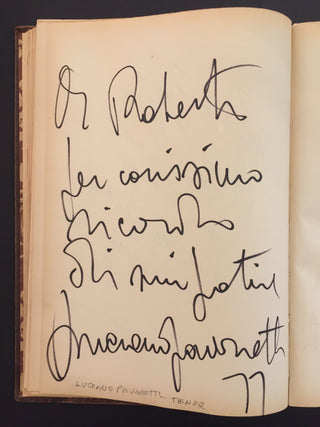 A Roberto
per carissimo
ricordo
di simpatia
Luciano Pavarotti
77
LUCIANO PAVAROTTI
TENOR